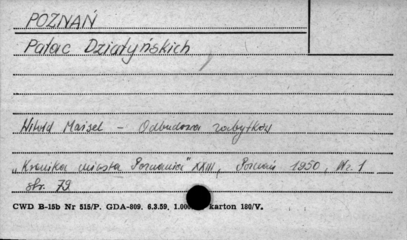 POZNAŃ
Pałac Działyńskich
Witold Maisel - Odbudowa zabytków
"Kronika miasta Poznania" XXIII, Poznań 1950, Nr. 1
str. 79
CWD B-15b Nr 515/P. GDA-809. 6.3.59. 1.000 karton 180/V.